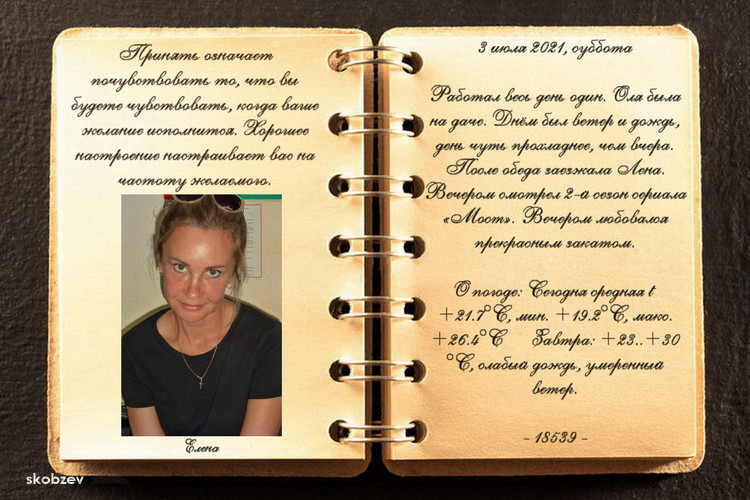 Принять означает
почувствовать то, что вы
будете чувствовать, когда ваше
желание исполнится. Хорошее
настроение настраивает вас на
частоту желаемого.
Елена
3 июля 2021, суббота
Работал весь день один. Оля была
на даче. Днём был ветер и дождь,
день чуть прохладнее, чем вчера.
После обеда заезжала Лена.
Вечером смотрел 2-й сезон сериала
«Мост». Вечером любовался
прекрасным закатом.
О погоде: Сегодня средняя t
+21.7°C, мин. +19.2°C, макс.
+26.4°C Завтра: +23..+30
°C, слабый дождь, умеренный
ветер.
- 18539 -
skobzev